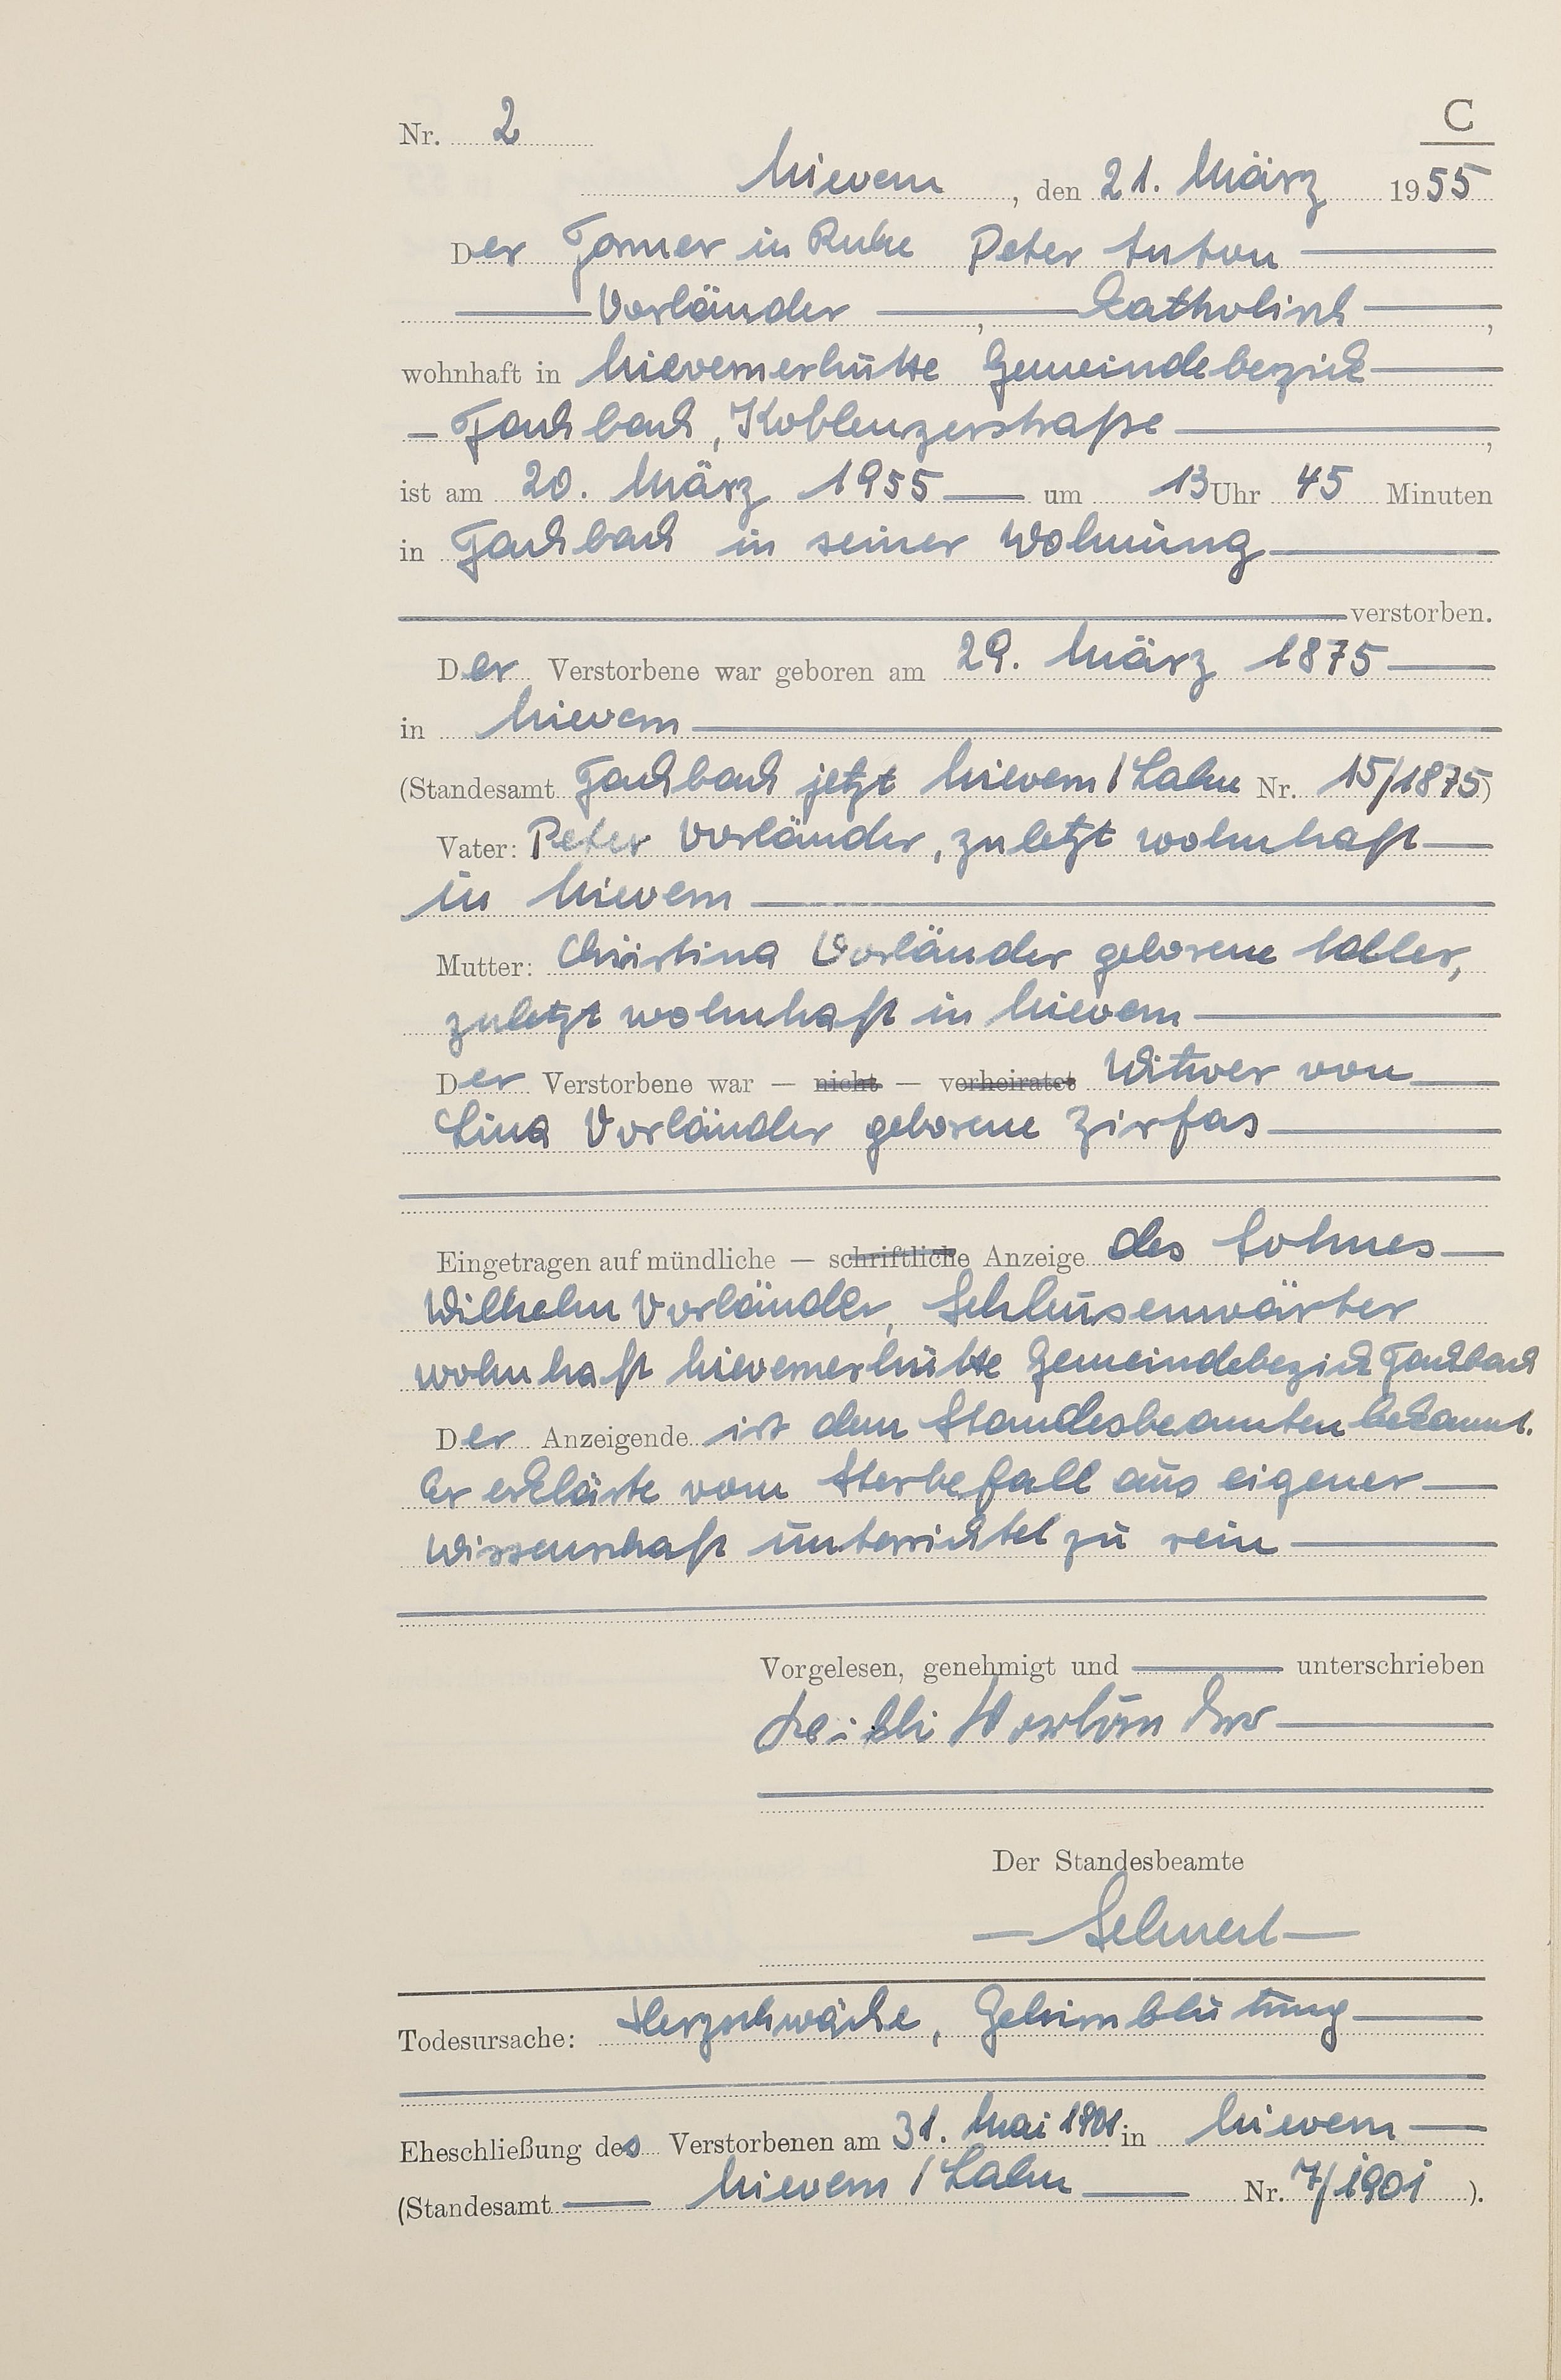 Nr. 2
C
Nievern, den 21. März 1955
Der Former in Ruhe Peter Anton
Vorländer, katholisch,
wohnhaft in Nievernerhütte Gemeindebezirk
Fachbach, Koblenzerstraße,
ist am 20. März 1955 um 13 Uhr 45 Minuten
in Fachbach in seiner Wohnung
verstorben.
Der Verstorbene war geboren am 29. März 1875
in Nievern
(Standesamt Fachbach jetzt Nievern/Lahn Nr. 15/1875)
Vater: Peter Vorländer, zuletzt wohnhaft
in Nievern
Mutter: Christina Vorländer geborene Adler,
zuletzt wohnhaft in Nievern
Der Verstorbene war — nicht — verheiratet Witwer von
Lina Vorländer geborene Zirfas
Eingetragen auf mündliche — schriftliche Anzeige des Sohnes
Wilhelm Vorländer, Schleusenwärter
wohnhaft Nievernerhütte Gemeindebezirk Fachbach
Der Anzeigende ist dem Standesbeamten bekannt.
Er erklärte vom Sterbefall aus eigener
Wissenschaft unterrichtet zu sein
Vorgelesen, genehmigt und unterschrieben
Vorländer
Der Standesbeamte
Todesursache: Herzschwäche, Gehirnblutung
Eheschließung des Verstorbenen am 31. Mai 1901 in Nievern
(Standesamt Nievern/Lahn Nr. 7/1901).